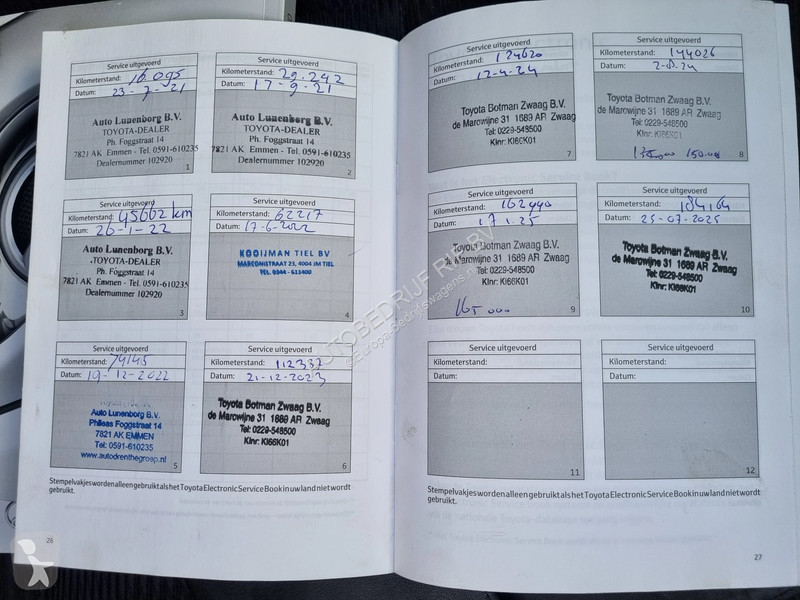 Service uitgevoerd
Kilometerstand: 16.095
Datum: 23-7-21
Auto Lunenborg B.V.
TOYOTA-DEALER
Ph. Foggstraat 14
7821 AK Emmen - Tel. 0591-610235
Dealernummer 102920
1
Service uitgevoerd
Kilometerstand: 29.242
Datum: 17-9-21
Auto Lunenborg B.V.
TOYOTA-DEALER
Ph. Foggstraat 14
7821 AK Emmen - Tel. 0591-610235
Dealernummer 102920
2
Service uitgevoerd
Kilometerstand: 45662 km
Datum: 26-1-22
Auto Lunenborg B.V.
TOYOTA-DEALER
Ph. Foggstraat 14
7821 AK Emmen - Tel. 0591-610235
Dealernummer 102920
3
Service uitgevoerd
Kilometerstand: 62217
Datum: 17-6-2022
KOOIJMAN TIEL BV
MARCONISTRAAT 23, 4004 JM TIEL
TEL. 0344 - 613400
4
Service uitgevoerd
Kilometerstand: 79145
Datum: 19-12-2022
Auto Lunenborg B.V.
Phileas Foggstraat 14
7821 AK EMMEN
Tel: 0591-610235
www.autodrenthegroep.nl
5
Service uitgevoerd
Kilometerstand: 112337
Datum: 21-12-2023
Toyota Botman Zwaag B.V.
de Marowijne 31 1689 AR Zwaag
Tel: 0229-548500
Klnr: KI66K01
6
Stempelvakjes worden alleen gebruikt als het Toyota Electronic Service Book in uw land niet wordt
gebruikt.
26
Service uitgevoerd
Kilometerstand: 124620
Datum: 12-4-24
Toyota Botman Zwaag B.V.
de Marowijne 31 1689 AR Zwaag
Tel: 0229-548500
Klnr: KI66K01
7
Service uitgevoerd
Kilometerstand: 144026
Datum: 2-8-24
Toyota Botman Zwaag B.V.
de Marowijne 31 1689 AR Zwaag
Tel: 0229-548500
Klnr: KI66K01
8
Service uitgevoerd
Kilometerstand: 162990
Datum: 17 1-25
Toyota Botman Zwaag B.V.
de Marowijne 31 1689 AR Zwaag
Tel: 0229-548500
Klnr: KI66K01
165 000
9
Service uitgevoerd
Kilometerstand: 184164
Datum: 25-07-2025
Toyota Botman Zwaag B.V.
de Marowijne 31 1689 AR Zwaag
Tel: 0229-548500
Klnr: KI66K01
10
Service uitgevoerd
Kilometerstand:
Datum:
11
Service uitgevoerd
Kilometerstand:
Datum:
12
Stempelvakjes worden alleen gebruikt als het Toyota Electronic Service Book in uw land niet wordt
gebruikt.
27